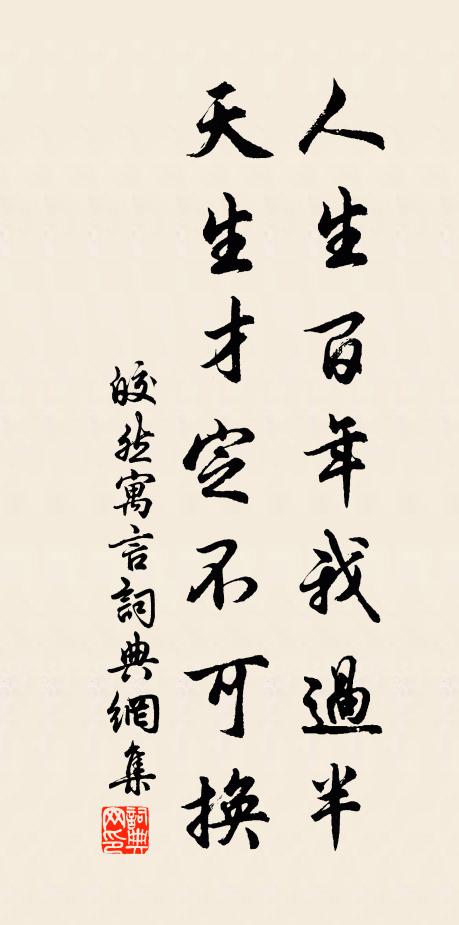 人生百年我過半
天生才定不可換
皎然寓言詞典網集
詞典网印